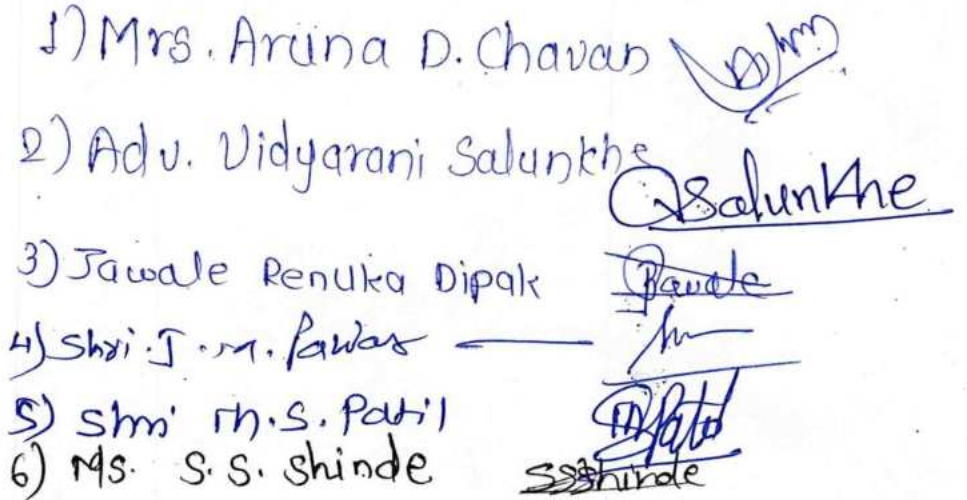 1) Mrs. Aruna D. Chavan
2) Adv. Vidyarani Salunkhe Salunkhe
3) Jawale Renuka Dipak Jawale
4) Shri. J. M. Pawar
5) Shri M. S. Patil MPatil
6) Ms. S. S. Shinde SSShinde